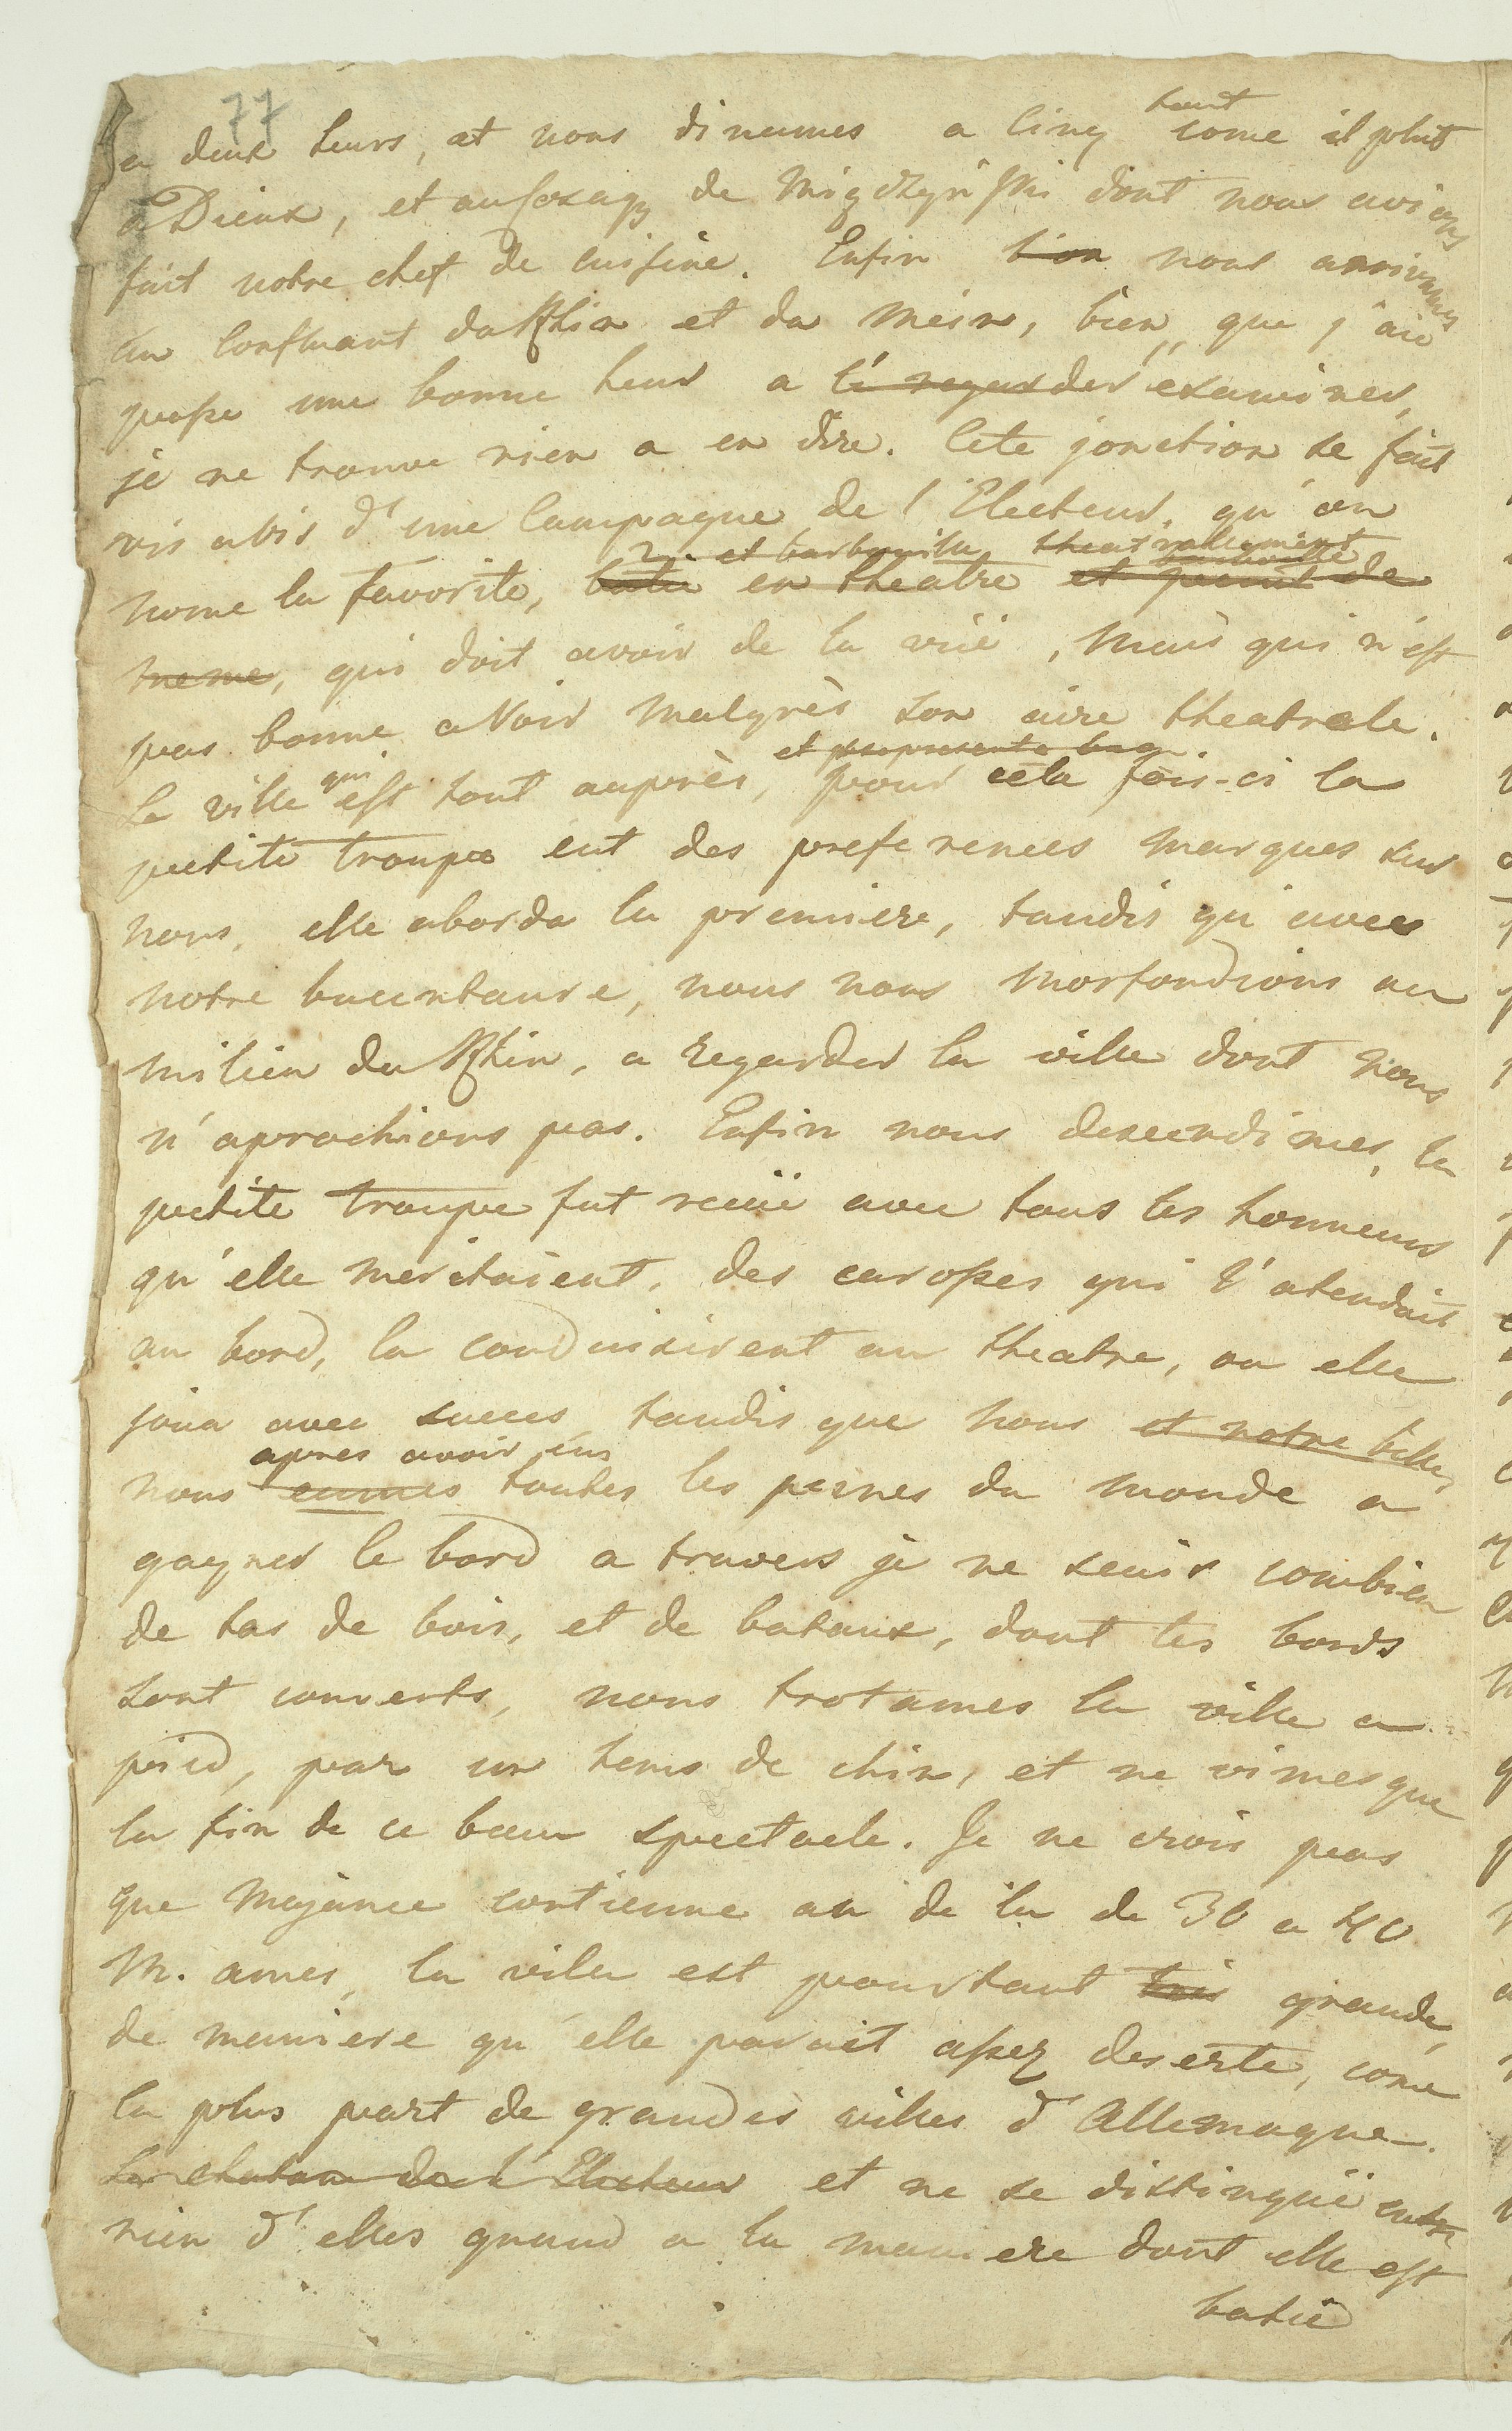 77
a deux heurs, et nous dinames a cinq tout come il plut
a Dieux, et au de dont nous avions
fait notre chef de cuisine. Enfin l'on nous arrivames
au Confluant du Rhin et du Mein, bien que j'aie
passe une bonne heur a le regarder examiner,
je ne trouve rien a en dire. Cete jonction se fait
vis avis d'une Campagne de l'Electeur, qu'on
2. et barbouilie theatralement
nome la favorite, batie en theatre et peint de
meme, qui doit avoir de la vüe, mais qui n'est
pas bonne a Voir malgrès son aire theatrale.
et
La ville qui est tout auprès, pour cela fois-ci la
petite troupe eut des preferences marques sur
nous, elle aborda la premiere, tandis qu'avec
notre bucentaure, nous nous morfondions au
milieu du Rhin, a regarder la ville dont nous
n'aprochions pas. Enfin nous descendimes, la
petite troupe fut recüe avec tous les honneurs
qu'elle meritaient, des carosses qui l'atendait
au bord, la conduisirent au theatre, ou elle
joua avec succes, tandis que nous et notre
apres avoir eus
nous eumes toutes les peines du monde a
gagner le bord a travers je ne seais combien
de tas de bois, et de bataux, dont les bords
sont couverts, nous trotames la ville a
pied, par un tems de chien, et ne vimes que
la fin de ce beau spectacle. Je ne crois pas
que Majance contienne au de la de 30 a 40
M. ames, la ville est pourtant tres grande,
de maniere qu'elle parait assez deserte, come
la plus part de grandes villes d'Allemagne.
Le chateau de l'Electeur et ne se distingue entre
rien d'elles quand a la maniere dont elle est
batie